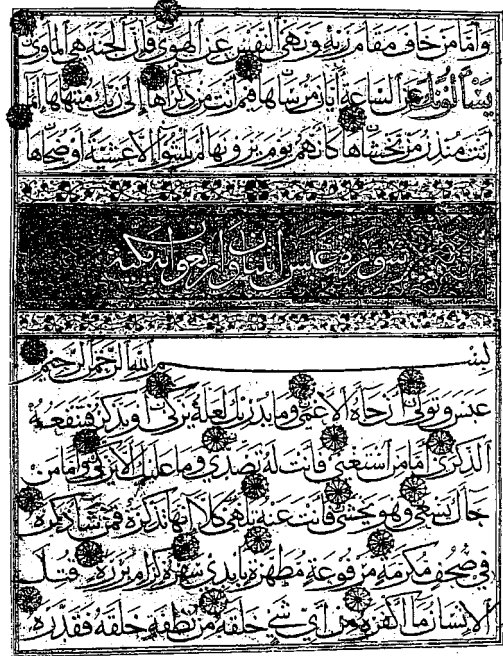 وأما من خاف مقام ربه ونهى النفس عن الهوى فإن الجنة هي المأوى
يسألونك عن الساعة أيان مرساها فيم أنت من ذكراها إلى ربك منتهاها إنما
أنت منذر من يخشاها كأنهم يوم يرونها لم يلبثوا إلا عشية أو ضحاها
سورة عبس اثنتان وأربعون آية مكية
بسم الله الرحمن الرحيم
عبس وتولى أن جاءه الأعمى وما يدريك لعله يزكى أو يذكر فتنفعه
الذكرى أما من استغنى فأنت له تصدى وما عليك ألا يزكى وأما من
جاءك يسعى وهو يخشى فأنت عنه تلهى كلا إنها تذكرة فمن شاء ذكره
في صحف مكرمة مرفوعة مطهرة بأيدي سفرة كرام بررة قتل
الإنسان ما أكفره من أي شيء خلقه من نطفة خلقه فقدره